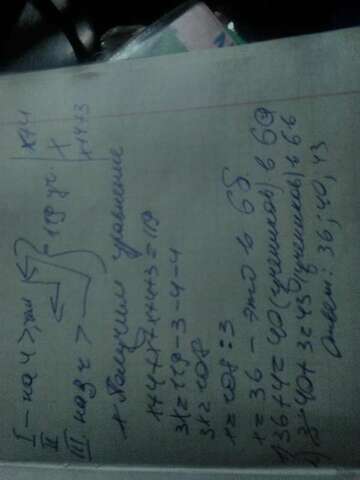 I – на 4 >, чем | x+4
II } = 119 уч. | x
III на 3 ч > | x+4+3
Получим уравнение
x+4+x+x+4+3=119
3x=119-3-4-4
3x=108
x=108:3
x=36 – это в 6б
1) 36+4=40 (учеников) в 6а
2) 40+3=43 (учеников) в 6в
Ответ: 36; 40; 43